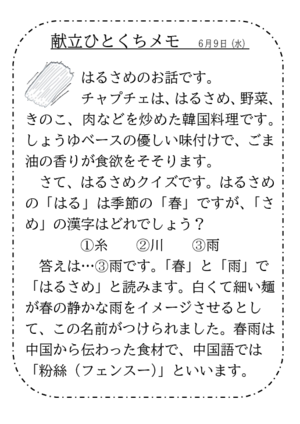 献立ひとくちメモ 6月9日（水）
はるさめのお話です。
チャプチェは、はるさめ、野菜、
きのこ、肉などを炒めた韓国料理です。
しょうゆベースの優しい味付けで、ごま
油の香りが食欲をそそります。
さて、はるさめクイズです。はるさめ
の「はる」は季節の「春」ですが、「さ
め」の漢字はどれでしょう？
①糸 ②川 ③雨
答えは…③雨です。「春」と「雨」で
「はるさめ」と読みます。白くて細い麺
が春の静かな雨をイメージさせるとし
て、この名前がつけられました。春雨は
中国から伝わった食材で、中国語では
「粉絲（フェンスー）」といいます。